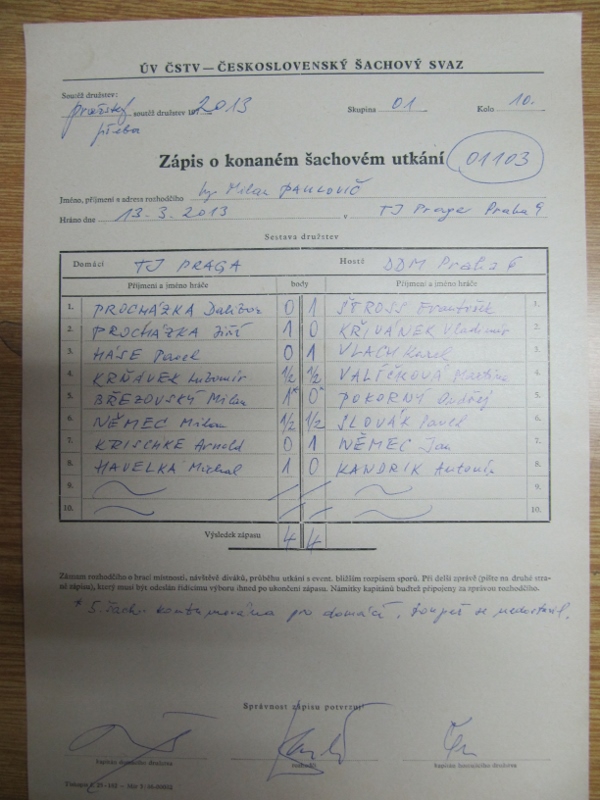 ÚV ČSTV — ČESKOSLOVENSKÝ ŠACHOVÝ SVAZ
Soutěž družstev:
pražský soutěž družstev 2013 Skupina 01 Kolo 10.
přebor
Zápis o konaném šachovém utkání 01103
Jméno, příjmení a adresa rozhodčího Ing. Milan PAVLOVIČ
Hráno dne 13.3.2013 v TJ Praga Praha 9
Sestava družstev
Domácí TJ PRAGA Hosté DDM Praha 6
Příjmení a jméno hráče body Příjmení a jméno hráče
1. PROCHÁZKA Dalibor 0 1 ŠTROSS František 1.
2. PROCHÁZKA Jiří 1 0 KŘIVÁNEK Vladimír 2.
3. HÁSE Pavel 0 1 VLACH Karel 3.
4. KRŇÁVEK Lubomír ½ ½ VALÍČKOVÁ Martina 4.
5. BŘEZOVSKÝ Milan 1* 0* POKORNÝ Ondřej 5.
6. NĚMEC Milan ½ ½ SLOVÁK Pavel 6.
7. KRISCHKE Arnold 0 1 NĚMEC Jan 7.
8. HAVELKA Michal 1 0 KANDRIK Antonín 8.
9. 9.
10. 10.
Výsledek zápasu 4 4
Záznam rozhodčího o hrací místnosti, návštěvě diváků, průběhu utkání s event. bližším rozpisem sporů. Při delší zprávě (pište na druhé stra-
ně zápisu), který musí být odeslán řídícímu výboru ihned po ukončení zápasu. Námitky kapitánů buďtež připojeny za zprávou rozhodčího.
* 5. šach. kontumována pro domácí, soupeř se nedostavil.
Správnost zápisu potvrzují
kapitán domácího družstva rozhodčí kapitán hostujícího družstva